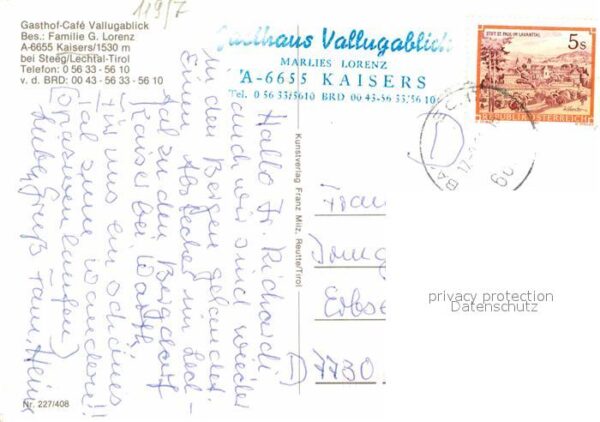 119/7
Gasthof-Café Vallugablick
Bes.: Familie G. Lorenz
A-6655 Kaisers/1530 m
bei Steeg/Lechtal-Tirol
Telefon: 0 56 33 - 56 10
v. d. BRD: 00 43 - 56 33 - 56 10
Gasthaus Vallugablick
MARLIES LORENZ
A-6655 KAISERS
Tel. 0 56 33/5610 BRD 00 43-56 33/56 10
STIFT ST. PAUL IM LAVANTTAL
5 S
REPUBLIK ÖSTERREICH
Hallo Fr. Richardi
auch wir sind wieder
in den Bergen gelandet.
Einen Abstecher ins Lech-
tal zu den Bergdorf
Kaisers bei Warth
Für uns ein schönes
Tal zum wandern!!
Lieben Gruß Fam. Heine
Kunstverlag Franz Milz, Reutte/Tirol
Frau
Erbse
D 7730
privacy protection
Datenschutz
Nr. 227/408